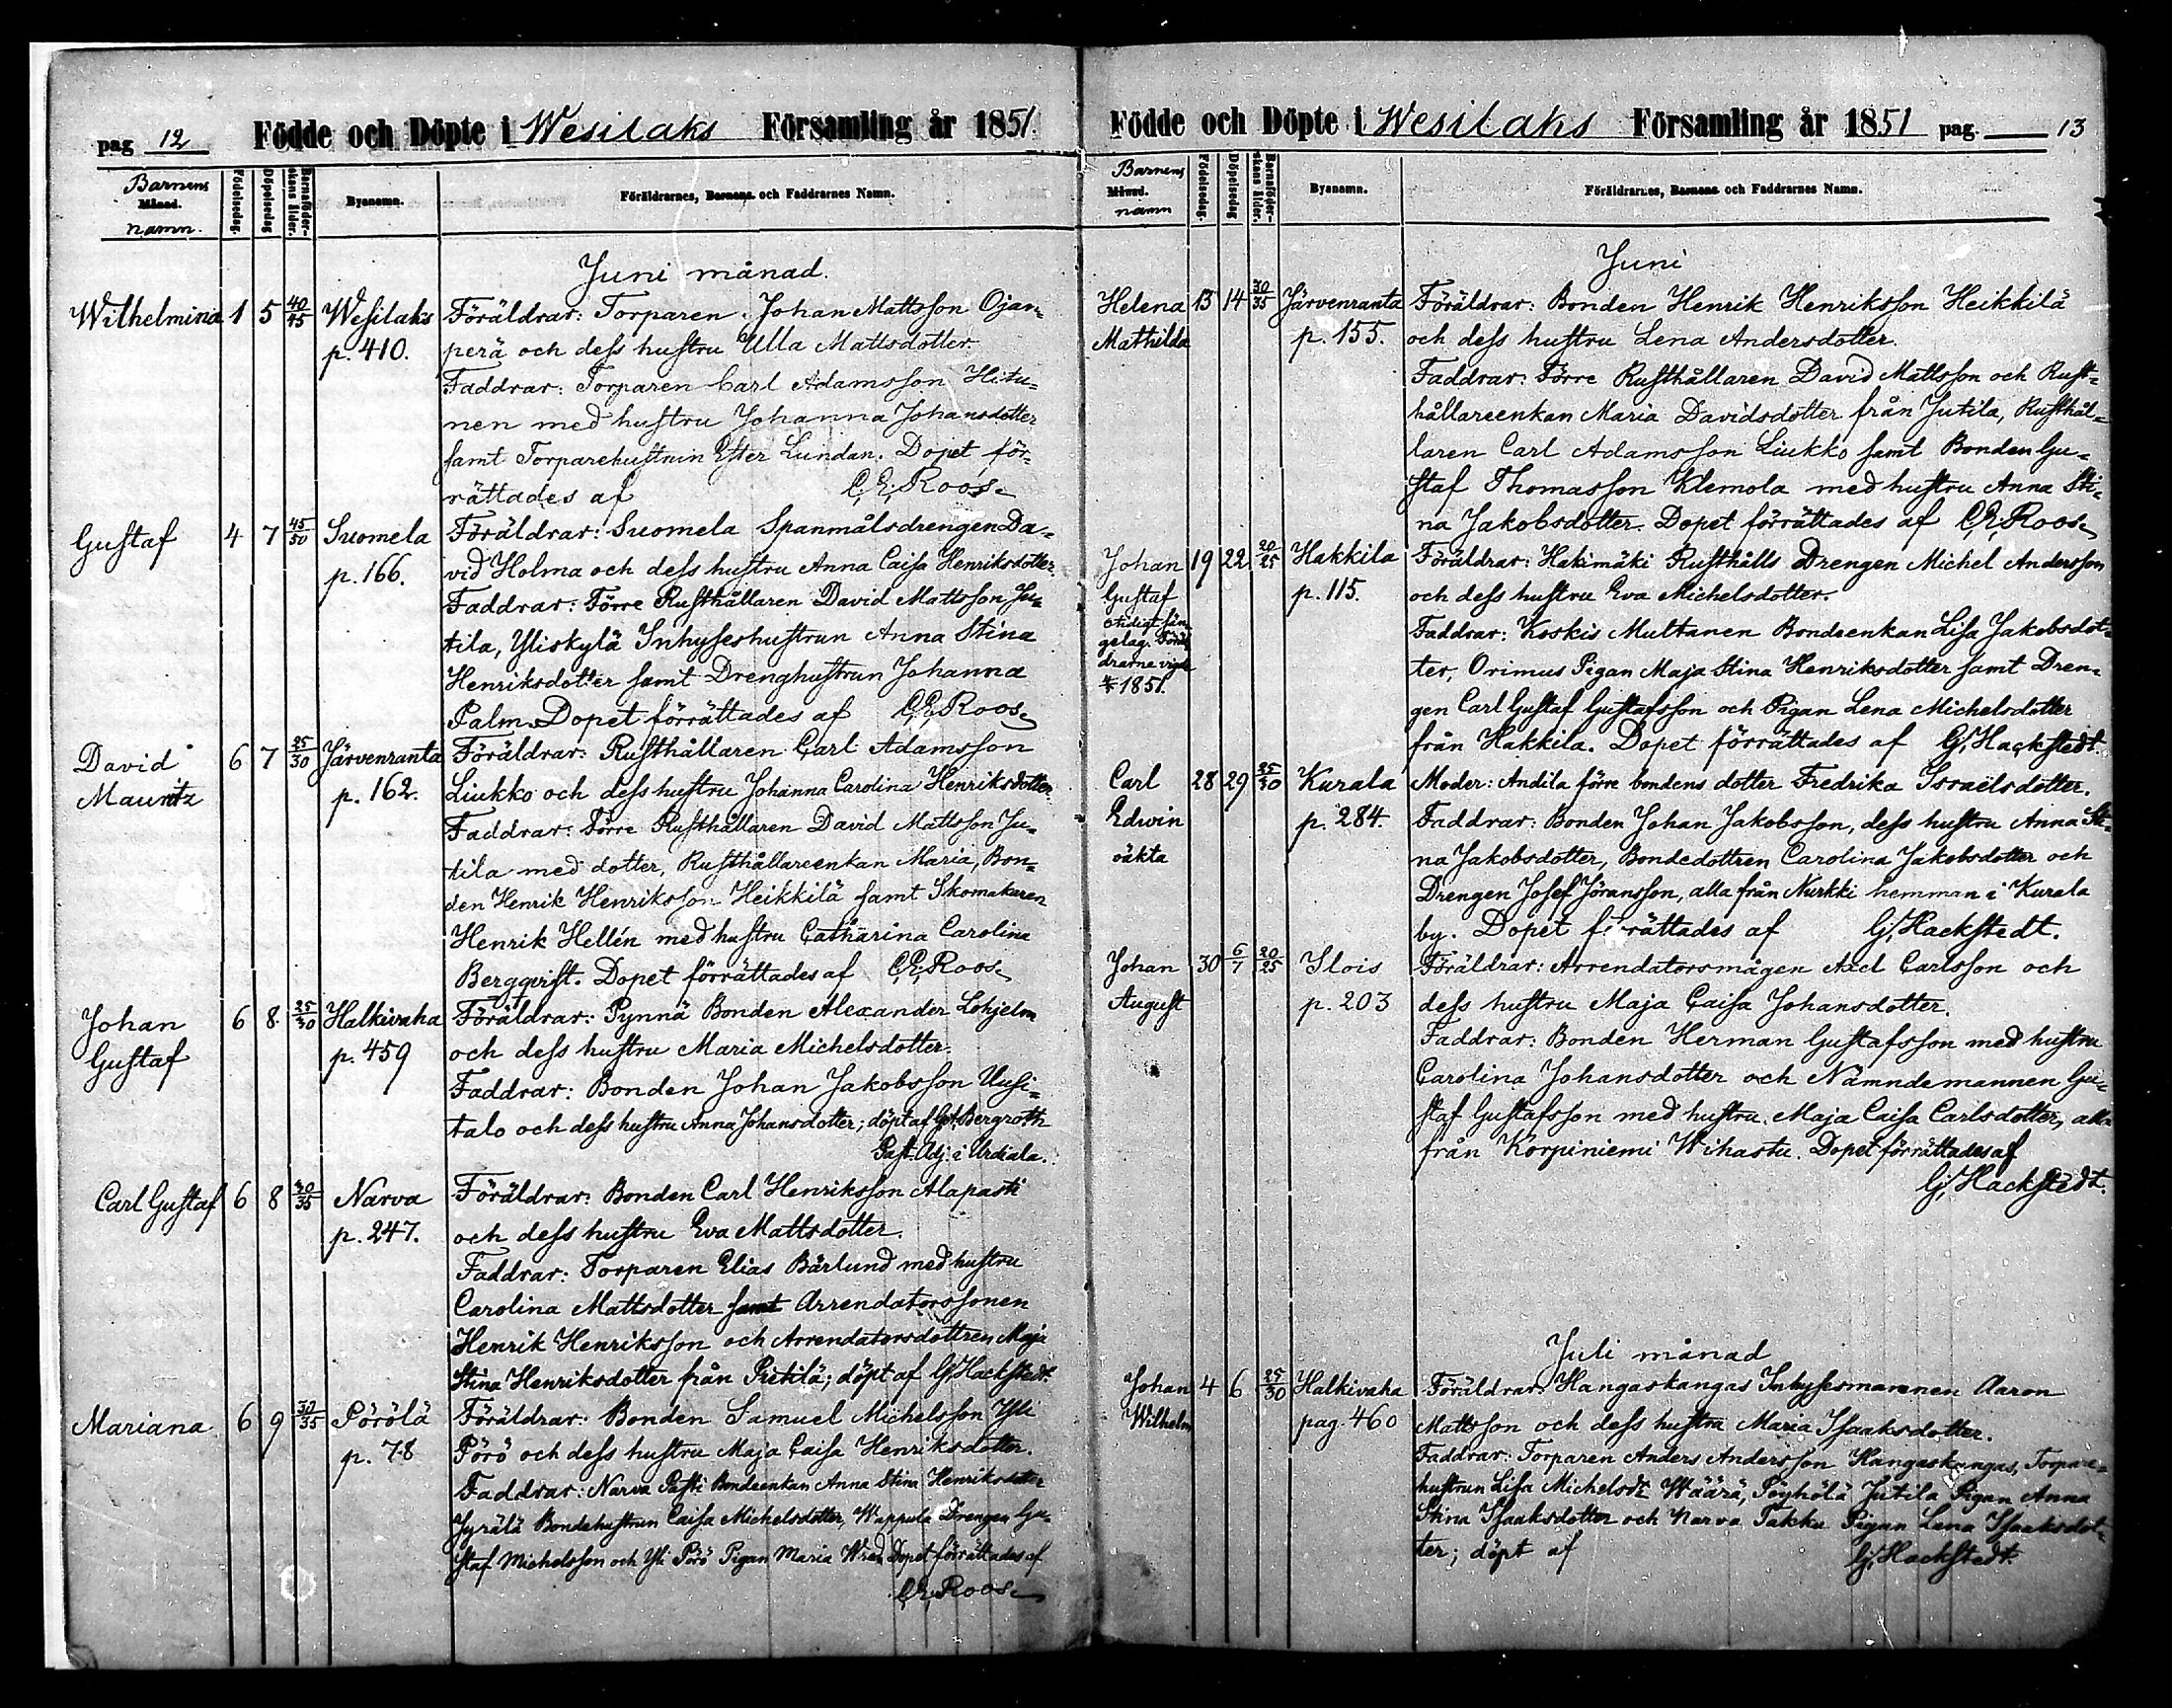 pag 12 Födde och Döpte i Wesilaks Församling år 1851.
Barnens
Månad.
namn.
Födelsedag.
Döpelsedag
Barnaföder-
skans ålder.
Bysnamn.
Föräldrarnes, Barnens och Faddrarnes Namn.
Juni månad.
Wilhelmina 1 5 40/45 Wesilaks Föräldrar: Torparen Johan Mattsson Ojan-
p. 410. perä och dess hustru Ulla Mattsdotter
Faddrar: Torparen Carl Adamsson Hitu-
nen med hustru Johanna Johansdotter
samt Torparehustrun Ester Lundan. Dopet för-
rättades af C. E. Roos.
Gustaf 4 7 45/50 Suomela Föräldrar: Suomela Spanmålsdrengen Da-
p. 166. vid Holma och dess hustru Anna Caisa Henriksdotter.
Faddrar: Förre Rusthållaren David Mattsson Ju-
tila, Yliskylä Inhyseshustrun Anna Stina
Henriksdotter samt Drenghustrun Johanna
Palm. Dopet förrättades af C. E. Roos.
David 6 7 25/30 Järvenranta Föräldrar: Rusthållaren Carl Adamsson
Mauritz p. 162. Liukko och dess hustru Johanna Carolina Henriksdotter.
Faddrar: Förre Rusthållaren David Mattsson Ju-
tila med dotter, Rusthållareenkan Maria, Bon-
den Henrik Henriksson Heikkilä samt Skomakaren
Henrik Hellén med hustru Catharina Carolina
Bergqvist. Dopet förrättades af C. E. Roos.
Johan 6 8 25/30 Halkivaha Föräldrar: Pynnä Bonden Alexander Lohjelm
Gustaf p. 459 och dess hustru Maria Michelsdotter.
Faddrar: Bonden Johan Jakobsson Uusi-
talo och dess hustru Anna Johansdotter; döpt af Bergroth
Past. Adj. i Urdiala.
Carl Gustaf 6 8 30/35 Narva Föräldrar: Bonden Carl Henriksson Alapasti
p. 247. och dess hustru Eva Mattsdotter.
Faddrar: Torparen Elias Bärlund med hustru
Carolina Mattsdotter samt Arrendatorssonen
Henrik Henriksson och Arrendatorsdottren Maja
Stina Henriksdotter från Pietilä; döpt af G. Hackstedt.
Mariana 6 9 30/35 Pörölä Föräldrar: Bonden Samuel Michelsson Yli
p. 78 Pörö och dess hustru Maja Caisa Henriksdotter.
Faddrar: Narva Pasti Bondeenkan Anna Stina Henriksdotter
Jyrälä Bondehustrun Caisa Michelsdotter, Weppula Drengen Gu-
staf Michelsson och Yli Pörö Pigan Maria Wred. Dopet förrättades af
C. E. Roos.
Födde och Döpte i Wesilaks Församling år 1851 pag. 13
Barnens
Månad.
namn
Födelsedag
Döpelsedag
Barnaföder-
skans ålder.
Bysnamn.
Föräldrarnes, Barnens och Faddrarnes Namn.
Juni
Helena 13 14 30/35 Järvenranta Föräldrar: Bonden Henrik Henriksson Heikkilä
Mathilda p. 155. och dess hustru Lena Andersdotter.
Faddrar: Förre Rusthållaren David Mattsson och Rust-
hållareenkan Maria Davidsdotter från Jutila, Rusthål-
laren Carl Adamsson Liukko samt Bonden Gu-
staf Thomasson Klemola med hustru Anna Sti-
na Jakobsdotter. Dopet förrättades af C. E. Roos.
Johan 19 22 20/25 Hakkila Föräldrar: Hakimäki Rusthålls Drengen Michel Andersson
Gustaf p. 115. och dess hustru Eva Michelsdotter.
otidigt sän-
gelag. Föräl
drarne vigde
1851.
Faddrar: Koskis Multanen Bondeenkan Lisa Jakobsdot-
ter, Orimus Pigan Maja Stina Henriksdotter samt Dren-
gen Carl Gustaf Gustafsson och Pigan Lena Michelsdotter
från Hakkila. Dopet förrättades af G. Hackstedt.
Carl 28 29 25/30 Kurala Moder: Andila förre bondens dotter Fredrika Israëlsdotter.
Edwin p. 284. Faddrar: Bonden Johan Jakobsson, dess hustru Anna Sti-
oäkta na Jakobsdotter, Bondedottren Carolina Jakobsdotter och
Drengen Josef Jöransson, alla från Nurkki hemman i Kurala
by. Dopet förrättades af G. Hackstedt.
Johan 30 6/7 20/25 Ilois Föräldrar: Arrendatorsmågen Axel Carlsson och
August p. 203 dess hustru Maja Caisa Johansdotter.
Faddrar: Bonden Herman Gustafsson med hustru
Carolina Johansdotter och Nämndemannen Gu-
staf Gustafsson med hustru Maja Caisa Carlsdotter, alla
från Korpiniemi Wihastu. Dopet förrättades af
G. Hackstedt.
Juli månad
Johan 4 6 25/30 Halkivaha Föräldrar: Hangaskangas Inhysesmannen Aaron
Wilhelm pag. 460 Mattsson och dess hustru Maria Isaaksdotter.
Faddrar: Torparen Anders Andersson Hangaskangas, Torpare-
hustrun Lisa Michelsdr Wäärä, Pöyhölä Jutila Pigan Anna
Stina Isaaksdotter och Narva Takku Pigan Lena Isaaksdot-
ter; döpt af G. Hackstedt.